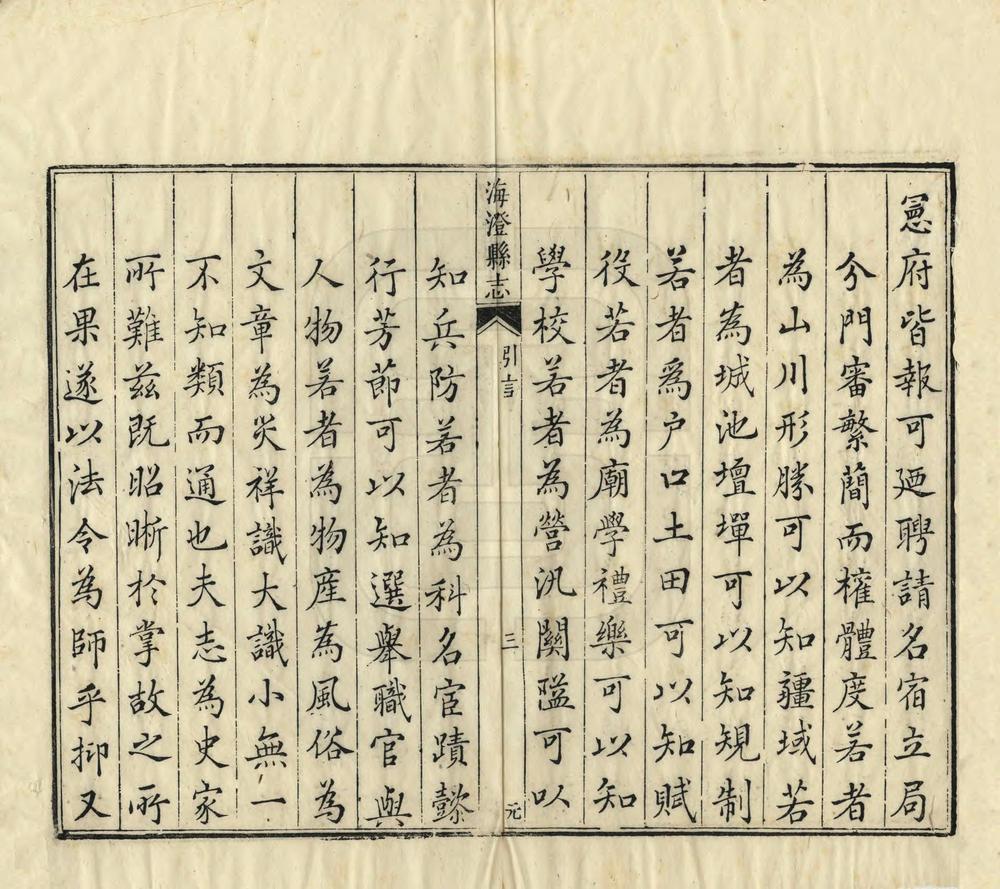 憲府皆報可廼聘請名宿立局
分門審繁簡而榷體度若者
為山川形勝可以知疆域若
者為城池壇墠可以知規制
若者爲户口土田可以知賦
役若者為廟學禮樂可以知
學校若者為營汛關隘可以
海澄縣志 引言 三 元
知兵防若者為科名宦蹟懿
行芳節可以知選舉職官與
人物若者為物産為風俗為
文章為災祥識大識小無一
不知類而通也夫志為史家
所難兹既昭晰於掌故之所
在果遂以法令為師乎抑又